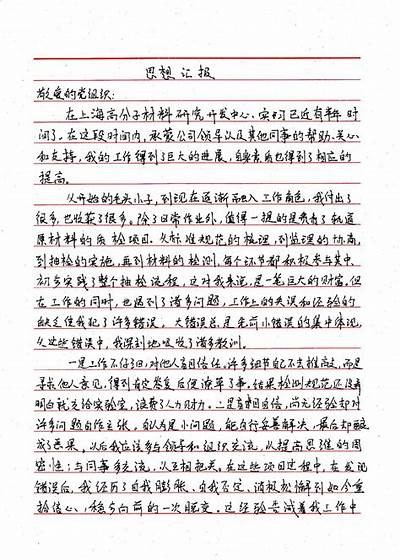 思想汇报
敬爱的党组织：
在上海高分子材料研究开发中心，实习已近有半年
间了。在这段时间内，承蒙公司领导以及其他同事的帮助、关心
和支持，我的工作得到了巨大的进展，自身素质也得到了相应的
提高。
从开始的毛头小子，到现在逐渐融入工作角色，我付出了
很多，也收获了很多。除了日常作业外，值得一提的是负责了轨道
原材料的质检项目。从标准规范的梳理，到监理的协商，
到抽检的实施，再到材料的检测，每个环节都积极参与其中，
初步实践了整个抽检流程，这对我来说，是一笔巨大的财富。但
在工作的同时，也遇到了诸多问题，工作上的失误和经验的
缺乏使我犯了许多错误。大错误总是先前小错误的集中体现，
从这些错误中，我深刻地吸取了诸多教训。
一是工作不仔细，对他人盲目信任，许多细节自己不去推敲，而是
寻求他人意见，得到肯定答复后便潦草了事，结果检测规范还没弄
明白就充给实验室，浪费了人力财力。二是盲目自信，尚无经验却对
许多问题自作主张，自认为是小问题，能自行妥善解决，最后却酿
成了恶果。以后我应该多与领导和组织交流，以提高思维的周
密性；与同事多交流，以互相把关。在这些项目过程中，在发现
错误后，我经历了自我膨胀、自我否定、消极松懈到如今重
拾信心、稳步向前的一次蜕变。这经验告诫着我工作中